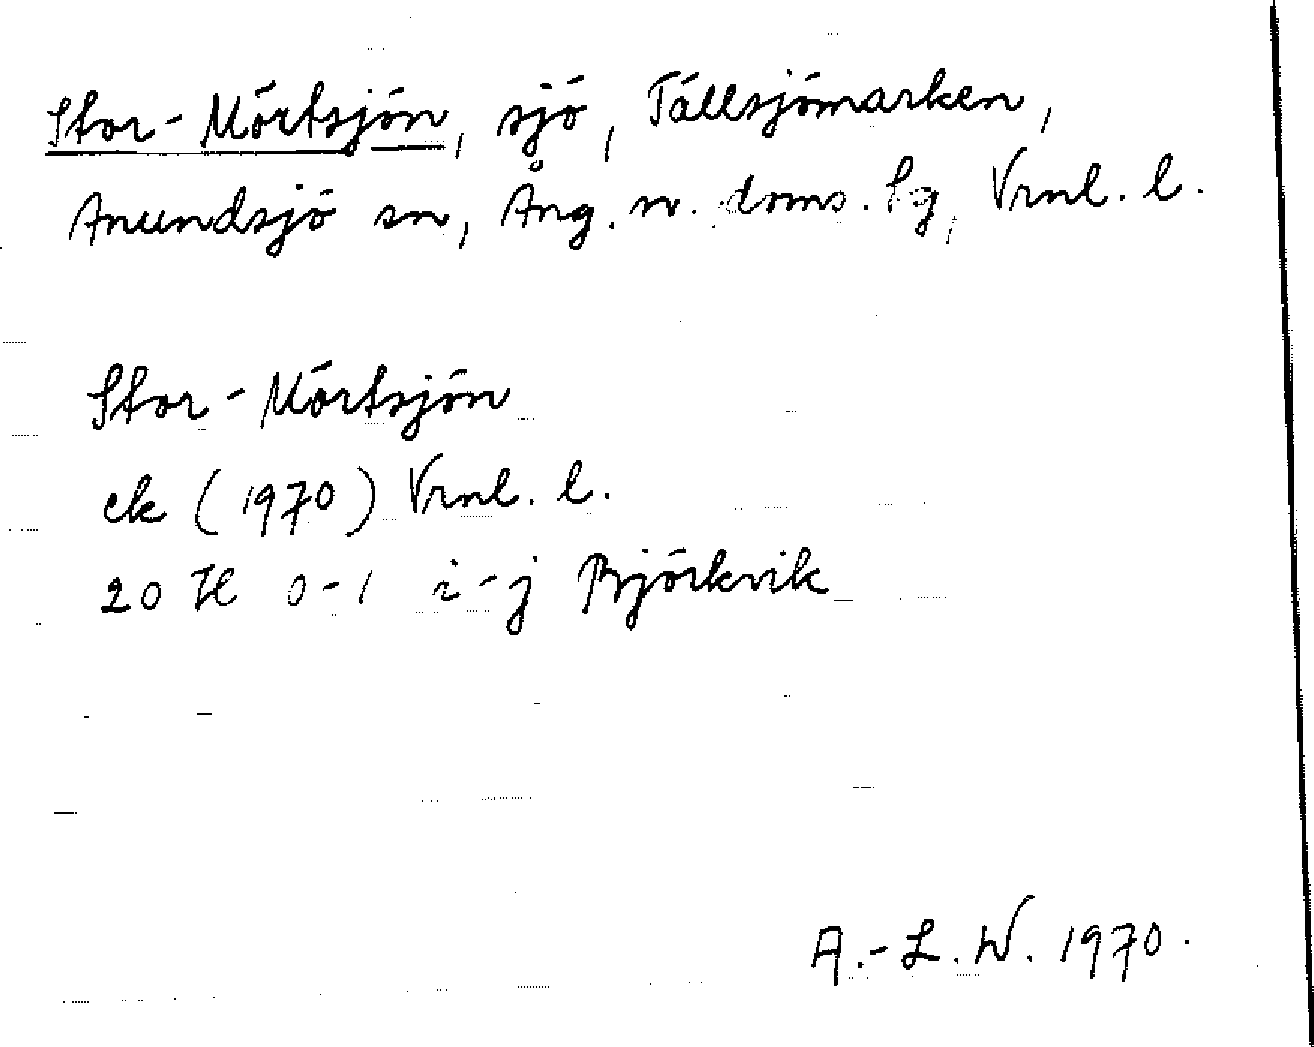 Stor-Mörtsjön, sjö, Tällsjömarken,
Anundsjö sn, Ång. n. doms. sg, Vrnl. l.
Stor-Mörtsjön
ek (1970) Vrnl. l.
20 H 0-1 i-j Björkvik
A.-L. W. 1970.